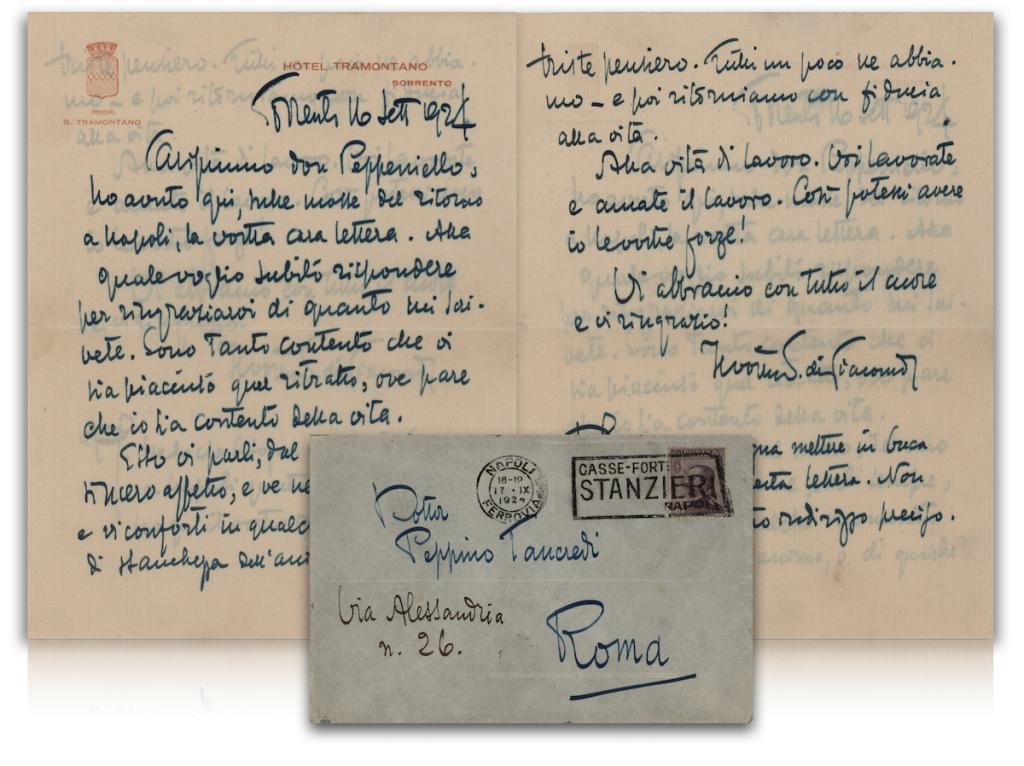 HÔTEL TRAMONTANO
SORRENTO
PROP.
G. TRAMONTANO
Sorrento 16 Sett 1924
Carissimo don Peppeniello,
ho avuto qui, sulle mosse del ritorno
a Napoli, la vostra cara lettera. Alla
quale voglio subito rispondere
per ringraziarvi di quanto mi scri-
vete. Sono tanto contento che vi
sia piaciuto quel ritratto, ove pare
che io sia contento della vita.
Esso vi parli, del
sincero affetto, e ve ne
e vi conforti in qualc
di stanchezza dell'ani
triste pensiero. Tutti un poco ne abbia-
mo – e poi ritorniamo con fiducia
alla vita.
Alla vita di lavoro. Voi lavorate
e amate il lavoro. Così potessi avere
io le vostre forze!
Vi abbraccio con tutto il cuore
e vi ringrazio!
Vostro S. di Giacomo
ma mettere in buca
esta lettera. Non
to indirizzo preciso.
NAPOLI
18-19
17 - IX
1924
FERROVIA
CASSE-FORTI
STANZIERI
NAPOLI
Dottor
Peppino Tancredi
Via Alessandria
n. 26.
Roma